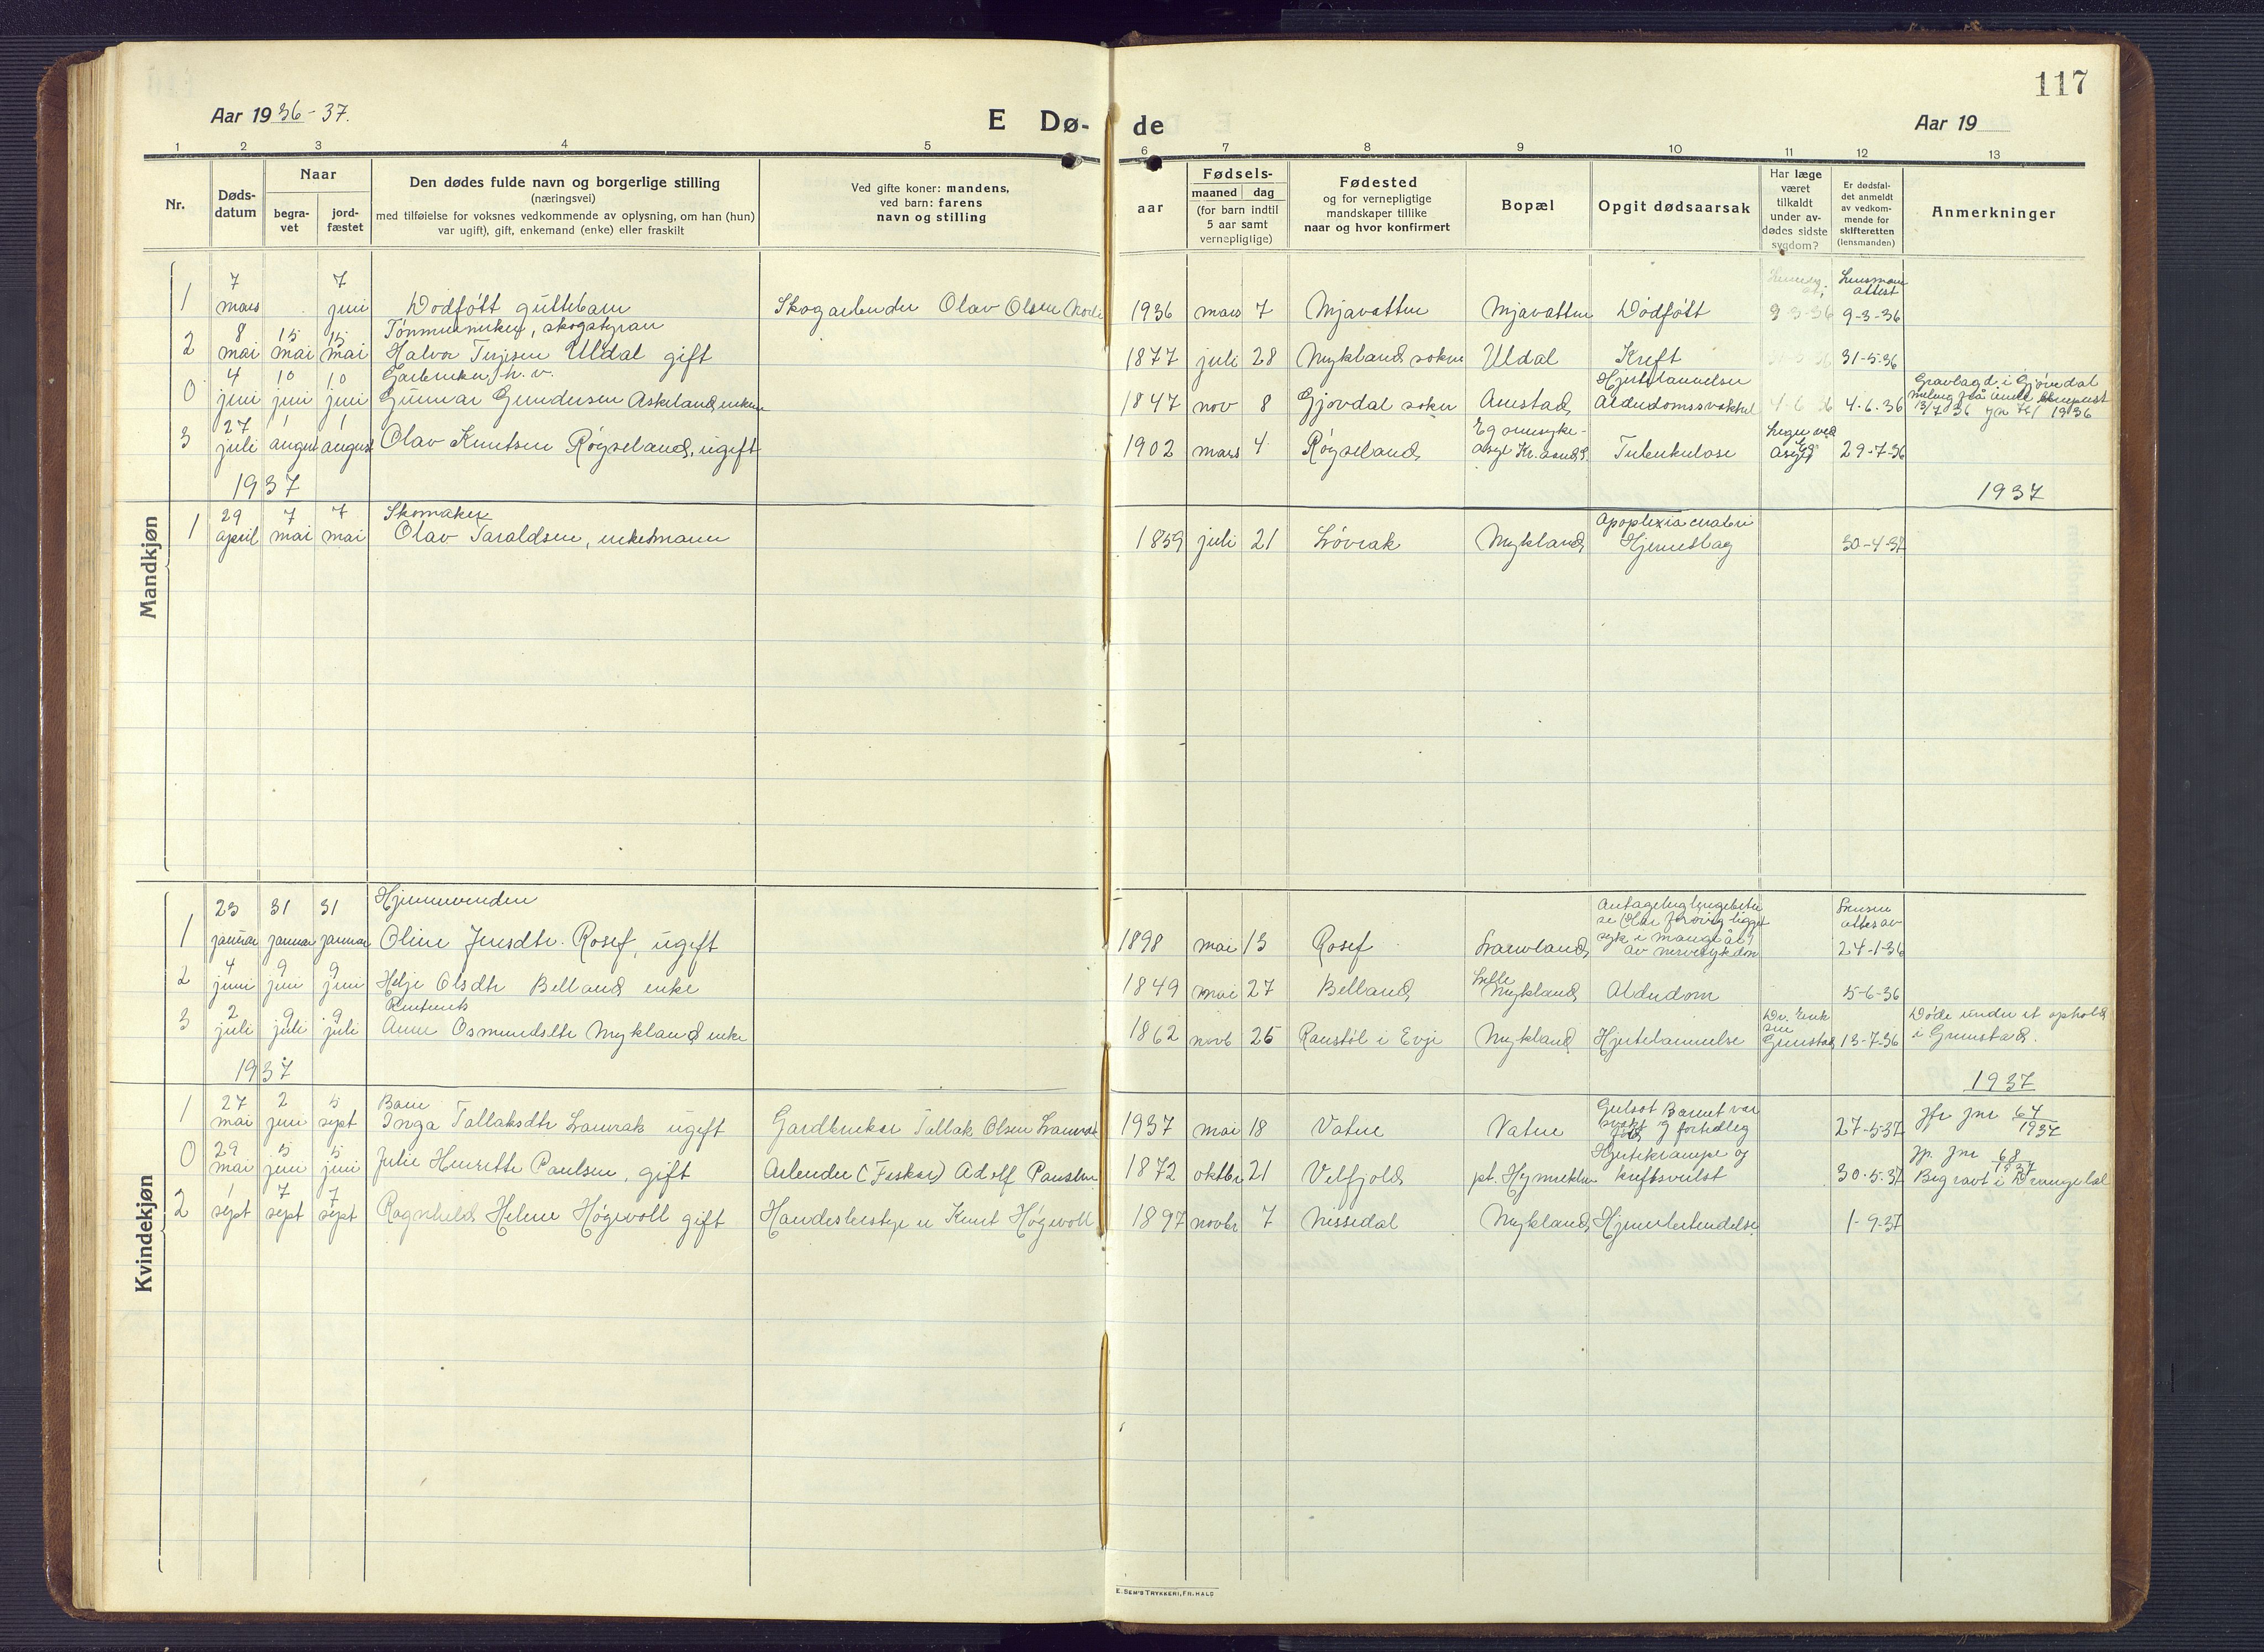 117
Aar 1936-37.
E Dø- de
Aar 19
1 2 3 4 5 6 7 8 9 10 11 12 13
Nr.
Døds-
datum
Naar
begra-
vet
jord-
fæstet
Den dødes fulde navn og borgerlige stilling
(næringsvei)
med tilføielse for voksnes vedkommende av oplysning, om han (hun)
var ugift), gift, enkemand (enke) eller fraskilt
Ved gifte koner: mandens,
ved barn: farens
navn og stilling
aar
Fødsels-
maaned dag
(for barn indtil
5 aar samt
vernepligtige)
Fødested
og for vernepligtige
mandskaper tillike
naar og hvor konfirmert
Bopæl
Opgit dødsaarsak
Har læge
været
tilkaldt
under av-
dødes sidste
sygdom?
Er dødsfal-
det anmeldt
av vedkom-
mende for
skifteretten
(lensmanden)
Anmerkninger
Mandkjøn
7 7 Lensmann
attest
1 mars juni Dødfött guttebarn Skogarbeider Olav Olsen 1936 mars 7 Mjavatten Mjavatten Dödfött 9-3-36 9-3-36
8 15 15 skogstyrar
2 mai mai mai Halvor Terjesen Uldal gift 1877 juli 28 Mykland sokn Uldal Kreft 31-5-36
4 10 10 Garbruker, h. v. Gravlagd i Gjövdal
0 juni juni juni Gunnar Gundersen Askeland, enkem 1847 nov 8 Gjövdal sokn Alderdomssvakhet 4-6-36 4-6-36 13/7 36 1936
27 1 1
3 juli august august Olav Knutsen Röyseland, ugift 1902 mars 4 Röyseland Eg sinnsyke-
asyl Kr.sand S. Tuberkulose Lege ved
Eg
Asyl 29-7-36
1937 1937
29 7 7 Skomaker Apoplexia cerebri
1 april mai mai Olav Taraldsen, enkemann 1859 juli 21 Lövrak Mykland Hjerneslag 30-4-37
Kvindekjøn
23 31 31
1 januar januar januar Oline Jensdtr. Rosef, ugift 1898 mai 13 Rosef syk i mange år)
av nervesykdom 24-1-36
4 9 9
2 juni juni juni Helje Olsdtr Belland enke 1849 mai 27 Belland Mykland Alderdom 5-6-36
2 9 9
3 juli juli juli Anne Osmundsdtr Mykland enke 1862 novb 25 Raustöl i Evje Mykland Hjertelammelse Dr. Erik
sen
Grimstad 13-7-36 Döde under et ophold
i Grimstad.
1937 1937
27 2 5 Barn
1 mai juni sept Inga Tallaksdtr Lauvrak ugift Gardbruker Tallak Olsen Lauvrak 1937 mai 18 Vatne Vatne Gulsot Barnet var
27-5-37 Jfr jnr 64/1937
29 5 5 Hjertekrampe og
0 mai juni juni Julie Henriette Paulsen, gift Arbeider (Fisker) Adolf Paulsen 1872 oktbr 21 Velfjord kreftsvulst 30-5-37 Jfr jnr 68/1937
Begravt i Drangedal
1 7 7
2 sept sept sept Ragnhild Helene Högevoll gift Handelsbestyrer Knut Högevoll 1897 novbr 7 Nissedal Mykland Hjernebetendelse 1-9-37
E. SEM'S TRYKKERI, FR. HALD